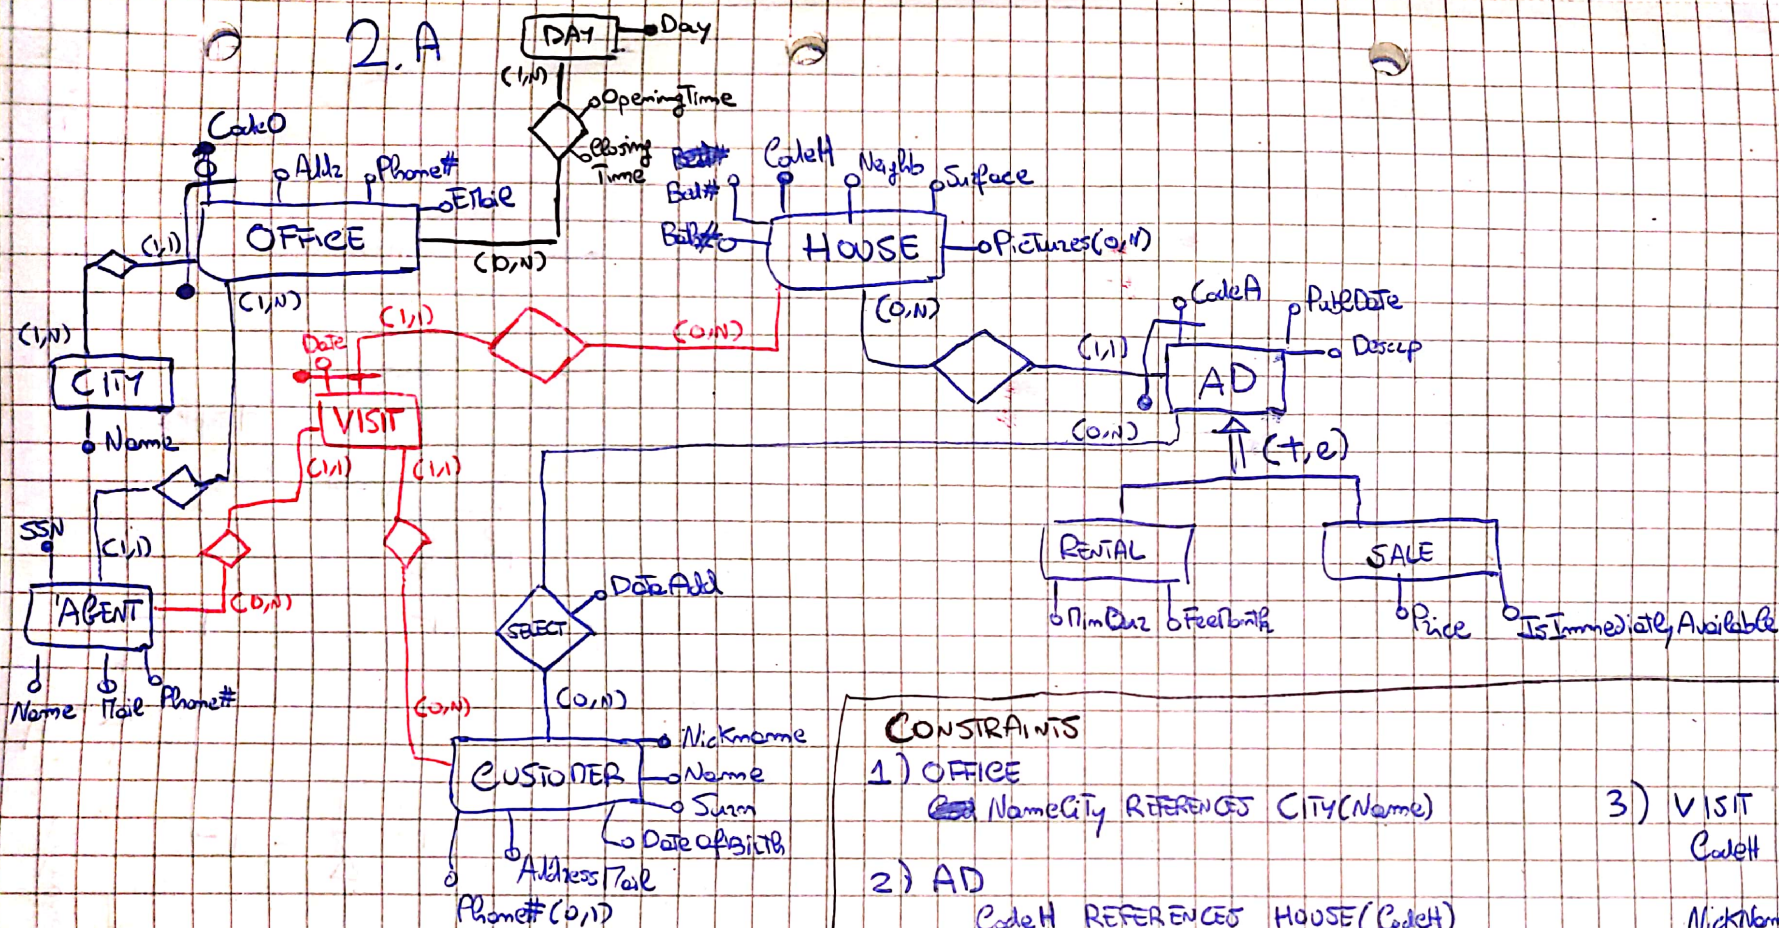 2.A
DAY
Day
(1,N)
OpeningTime
Closing
Time
CodeO
Addr
Phone#
EMail
OFFICE
(1,1)
(0,N)
(1,N)
(1,N)
CITY
Name
Bed#
Bath#
CodeH
Neighb
Surface
HOUSE
Pictures(0,N)
(1,1)
(0,N)
(0,N)
Date
VISIT
(1,1)
(1,1)
CodeA
PublDate
Descrp
(1,1)
AD
(0,N)
(t,e)
RENTAL
SALE
MinDur
FeeMonth
Price
IsImmediatelyAvailable
SSN
(1,1)
AGENT
(0,N)
Name
Mail
Phone#
DateAdd
SELECT
(0,N)
(0,N)
CUSTOMER
Nickname
Name
Surn
DateOfBirth
AddressMail
Phone#(0,1)
CONSTRAINTS
1) OFFICE
NameCity REFERENCES CITY(Name)
2) AD
CodeH REFERENCES HOUSE(CodeH)
3) VISIT
CodeH
NickNam